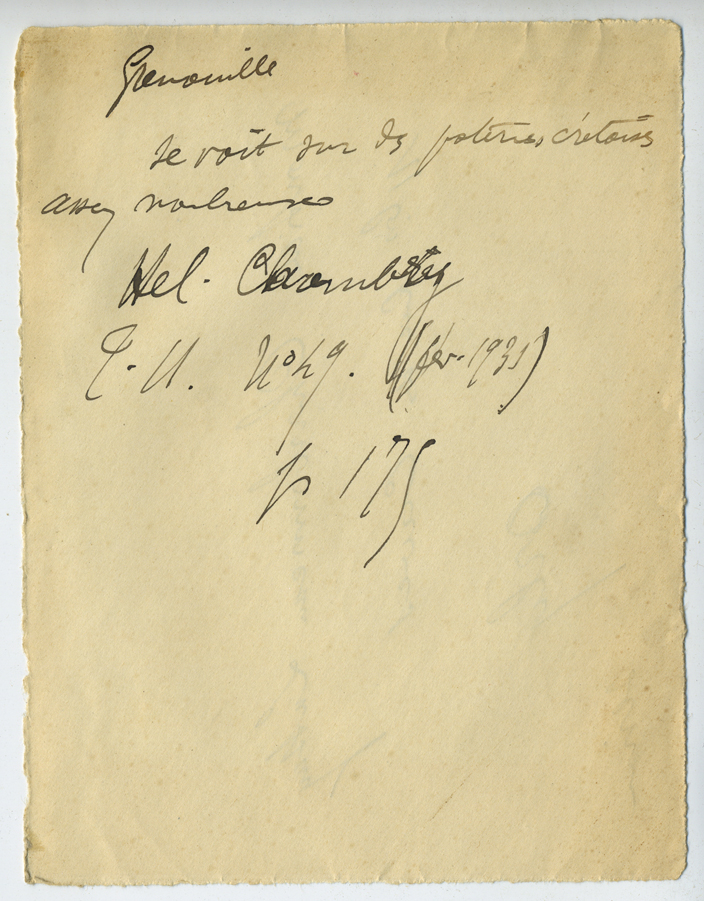 Grenouille
se voit sur des poteries crétoises
assez nombreuses
Hel. Chrombrey
T. U. N° 49. (fév. 1931)
p 175